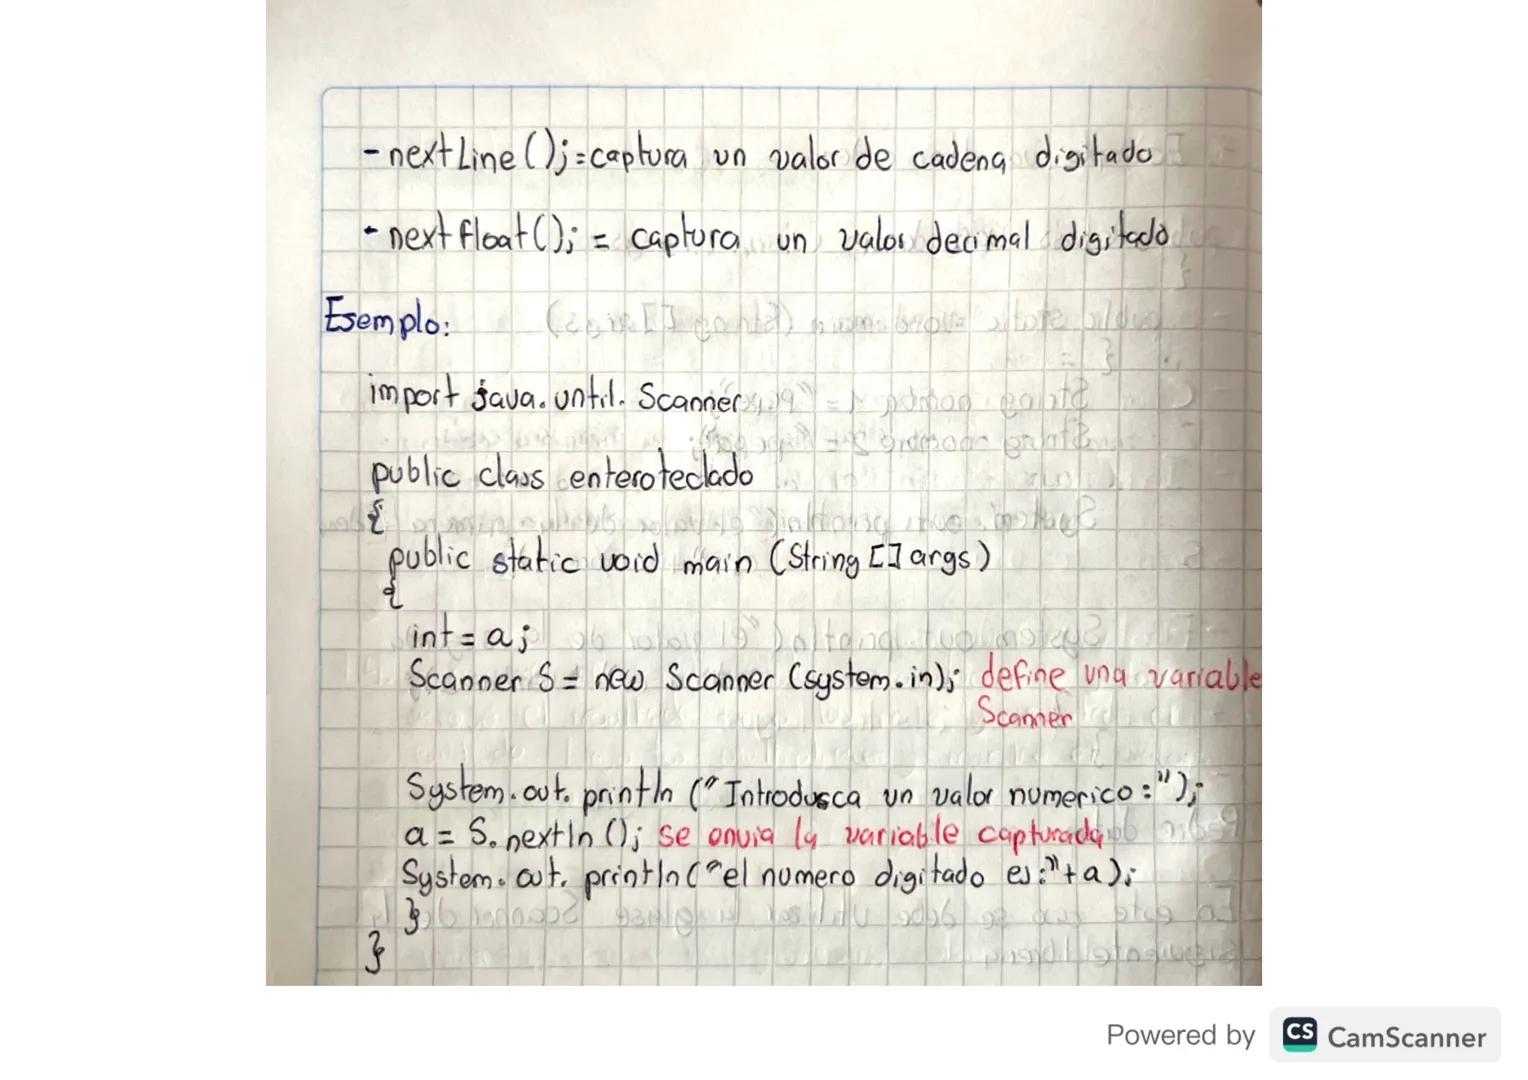 - nextLine();=captura un valor de cadena digitado
- nextfloat(); = captura un valor decimal digitado
Esemplo:
import java.until. Scanner
public class enteroteclado
{
public static void main (String [] args)
{
int = a;
Scanner S = new Scanner (system.in); define una variable
Scanner
System.out. println ("Introdusca un valor numerico :");
a = S. nextln (); se envia la variable capturada
System. out. println ("el numero digitado es:"+a);
}
}
Powered by CS CamScanner